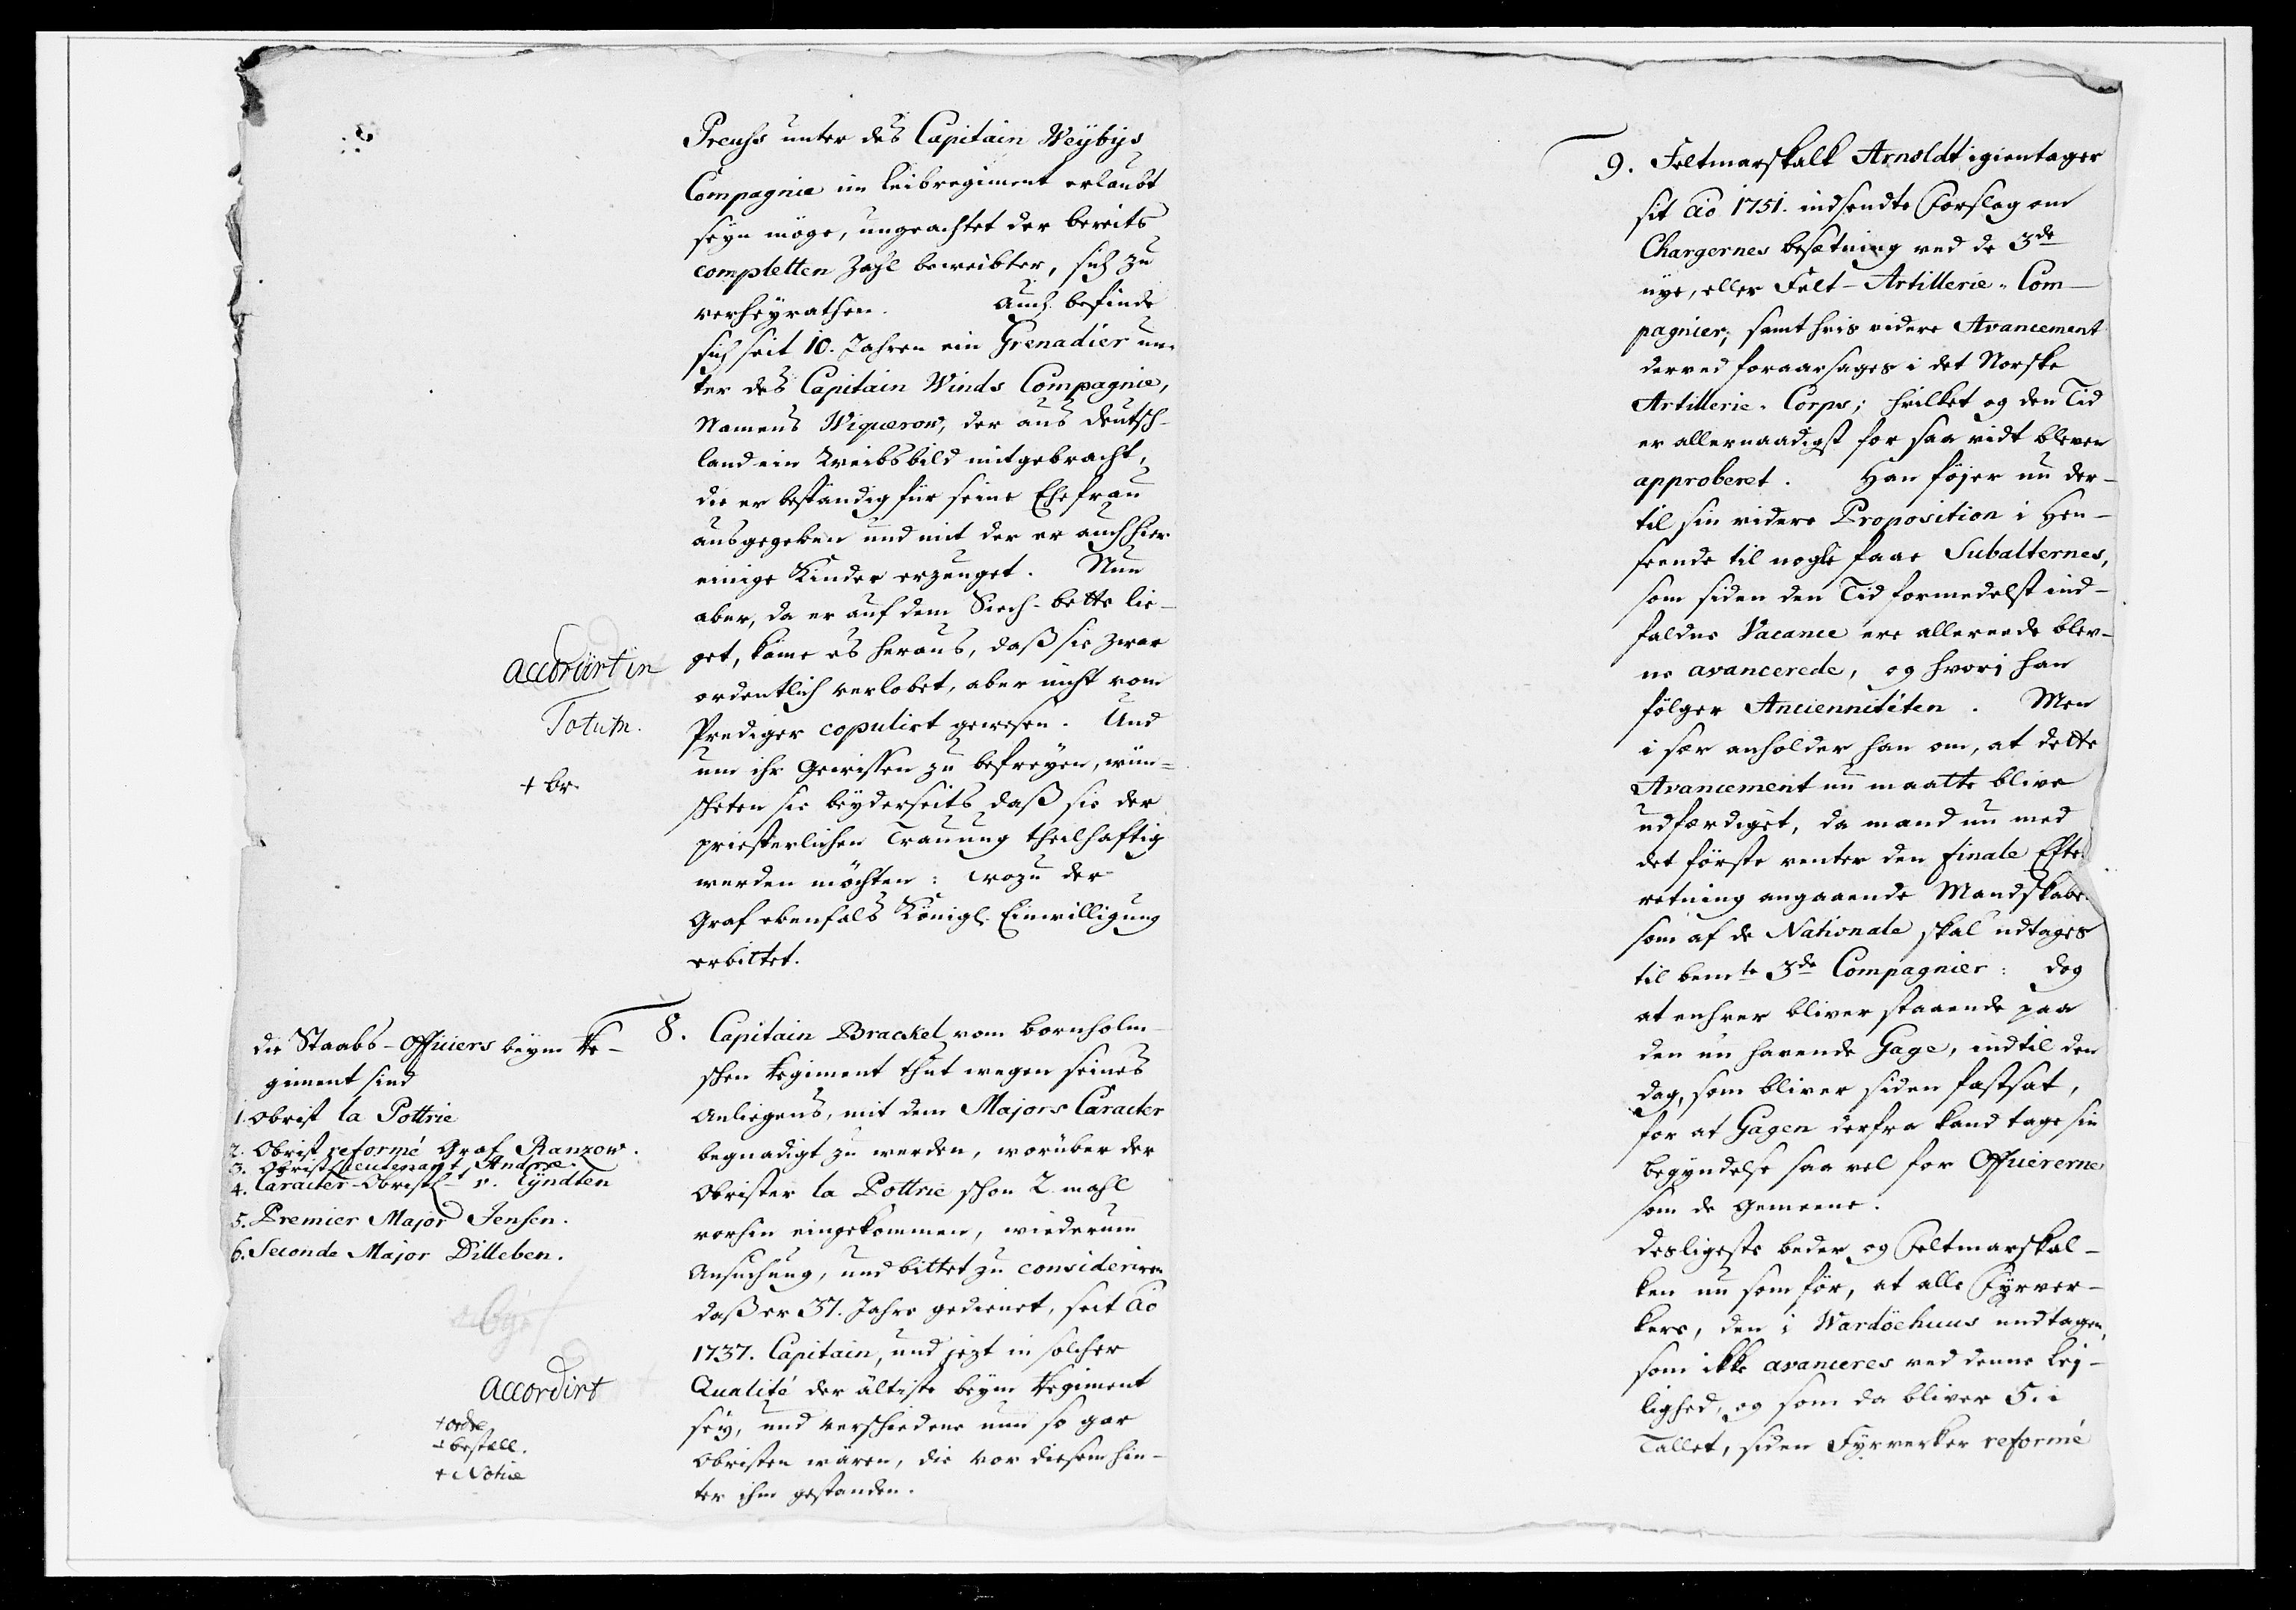 Preuss unter des Capitain Weÿbÿs
Compagnie im Leibregiment erlaubt
seyn möge, ungeachtet der bereits
completten Zahl beweibter, sich zu
verheÿrathen. Auch befinde
sich seit 10. Jahren ein Grenadier un-
ter des Capitain Winds Compagnie,
Namens Wiquerow, der aus Deutsch-
land ein Weibsbild mitgebracht,
die er beständig für seine Ehefrau
ausgegeben und mit der er auch hier
einige Kinder erzeuget. Nun
aber, da er auf dem Siech-bette lie-
get, käme es heraus, daß sie zwar
ordentlich verlobet, aber nicht vom
Prediger copulirt gewesen. Und
um ihr Gewissen zu befreÿen, wün-
scheten sie beÿderseits, daß sie der
priesterlichen Trauung theilhaftig
werden möchten: wozu der
Graf ebenfals Königl. Einwilligung
erbittet.
accordirt in
Totum.
+ br.
8. Capitain Brackel vom bornholm-
schen Regiment thut wegen seines
Anliegens, mit dem Majors Caracter
begnadigt zu werden, worüber der
Obrister la Pottrie schon 2 mahl
vorhin eingekommen, wiederum
Ansuchung, und bittet zu consideriren
daß er 37. Jahre gedienet, seit Ao
1737. Capitain, und jezt in solcher
Qualité der ältiste beÿm Regiment
seÿ, und verschiedene nun so gar
Obristen wären, die vor diesem hin-
ter ihm gestanden.
die Staabs-Officiers beÿm Re-
giment sind
1. Obrist la Pottrie
2. Obrist reformé Graf Ranzow.
3. Obristlieutenant Andræ
4. Caracter-Obristl v. Lÿndten
5. Premier Major Jensen.
6. Seconde Major Dilleben.
accordirt
+ ordre
+ bestall.
+ Notice
9. Feltmarskalk Arnoldt igientager
sit Ao 1751. indsendte Forslag om
Chargernes besætning ved de 3de
nye, eller Felt-Artillerie-Com-
pagnier, samt hvis videre Avancement
derved foraarsages i det Norske
Artillerie-Corps; hvilket og den Tid
er allernaadigst for saa vidt bleven
approberet. Han föjer nu der-
til sin videre Proposition i Hen-
seende til nogle faae Subalternes,
som siden den Tid formedelst ind-
faldne Vacance ere allereede blev-
ne avancerede, og hvorj han
fölger Anciennitéten. Men
i sær anholder han om, at dette
Avancement nu maatte blive
udfærdiget, da mand nu med
det förste venter den finale Efter
retning angaaende Mandskabet
som af de Nationale skal udtages
til bemte 3de Compagnier: dog
at enhver bliver staaende paa
den nu havende Gage, indtil den
dag, som bliver siden fastsat,
for at Gagen derfra kand tage sin
begyndelse saa vel for Officererne
som de Gemeene.
Desligeste beder og Feltmarskal-
ken nu som för, at alle Fÿrver-
kere, den i Wardöehuus undtagen,
som ikke avanceres ved denne lej-
lighed, og som da bliver 5. i
Tallet, siden Fÿrverker reformé